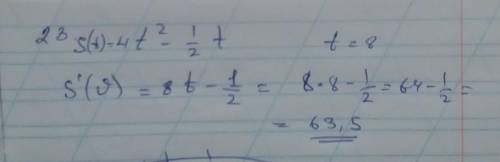 23 S(t)=4t² - 1/2 t t = 8
S'(v) = 8t - 1/2 = 8·8 - 1/2 = 64 - 1/2 =
= 63,5